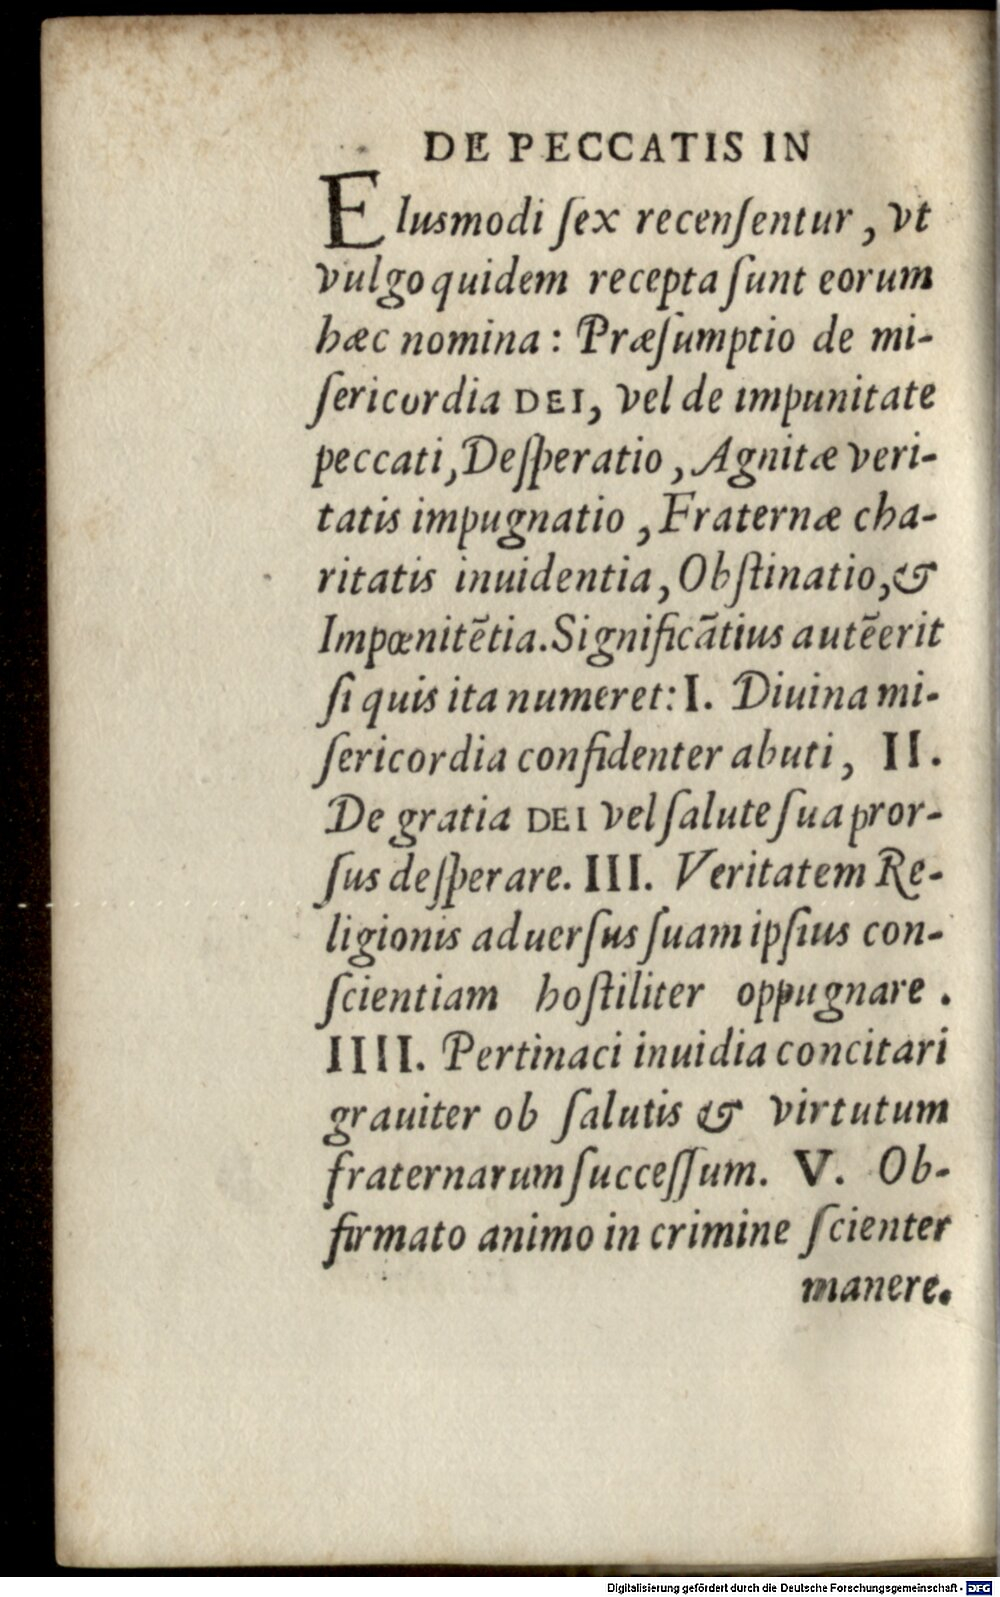 DE PECCATIS IN
EIusmodi ſex recenſentur, vt
vulgo quidem recepta ſunt eorum
hæc nomina: Præſumptio de mi-
ſericordia DEI, vel de impunitate
peccati, Deſperatio, Agnitæ veri-
tatis impugnatio, Fraternæ cha-
ritatis inuidentia, Obſtinatio, &
Impœnitẽtia. Significãtius autẽ erit
ſi quis ita numeret: I. Diuina mi-
ſericordia confidenter abuti, II.
De gratia DEI vel ſalute ſua pror-
ſus deſperare. III. Veritatem Re-
ligionis aduerſus ſuam ipſius con-
ſcientiam hoſtiliter oppugnare.
IIII. Pertinaci inuidia concitari
grauiter ob ſalutis & virtutum
fraternarum ſucceſſum. V. Ob-
firmato animo in crimine ſcienter
manere.
Digitalisierung gefördert durch die Deutsche Forschungsgemeinschaft - DFG